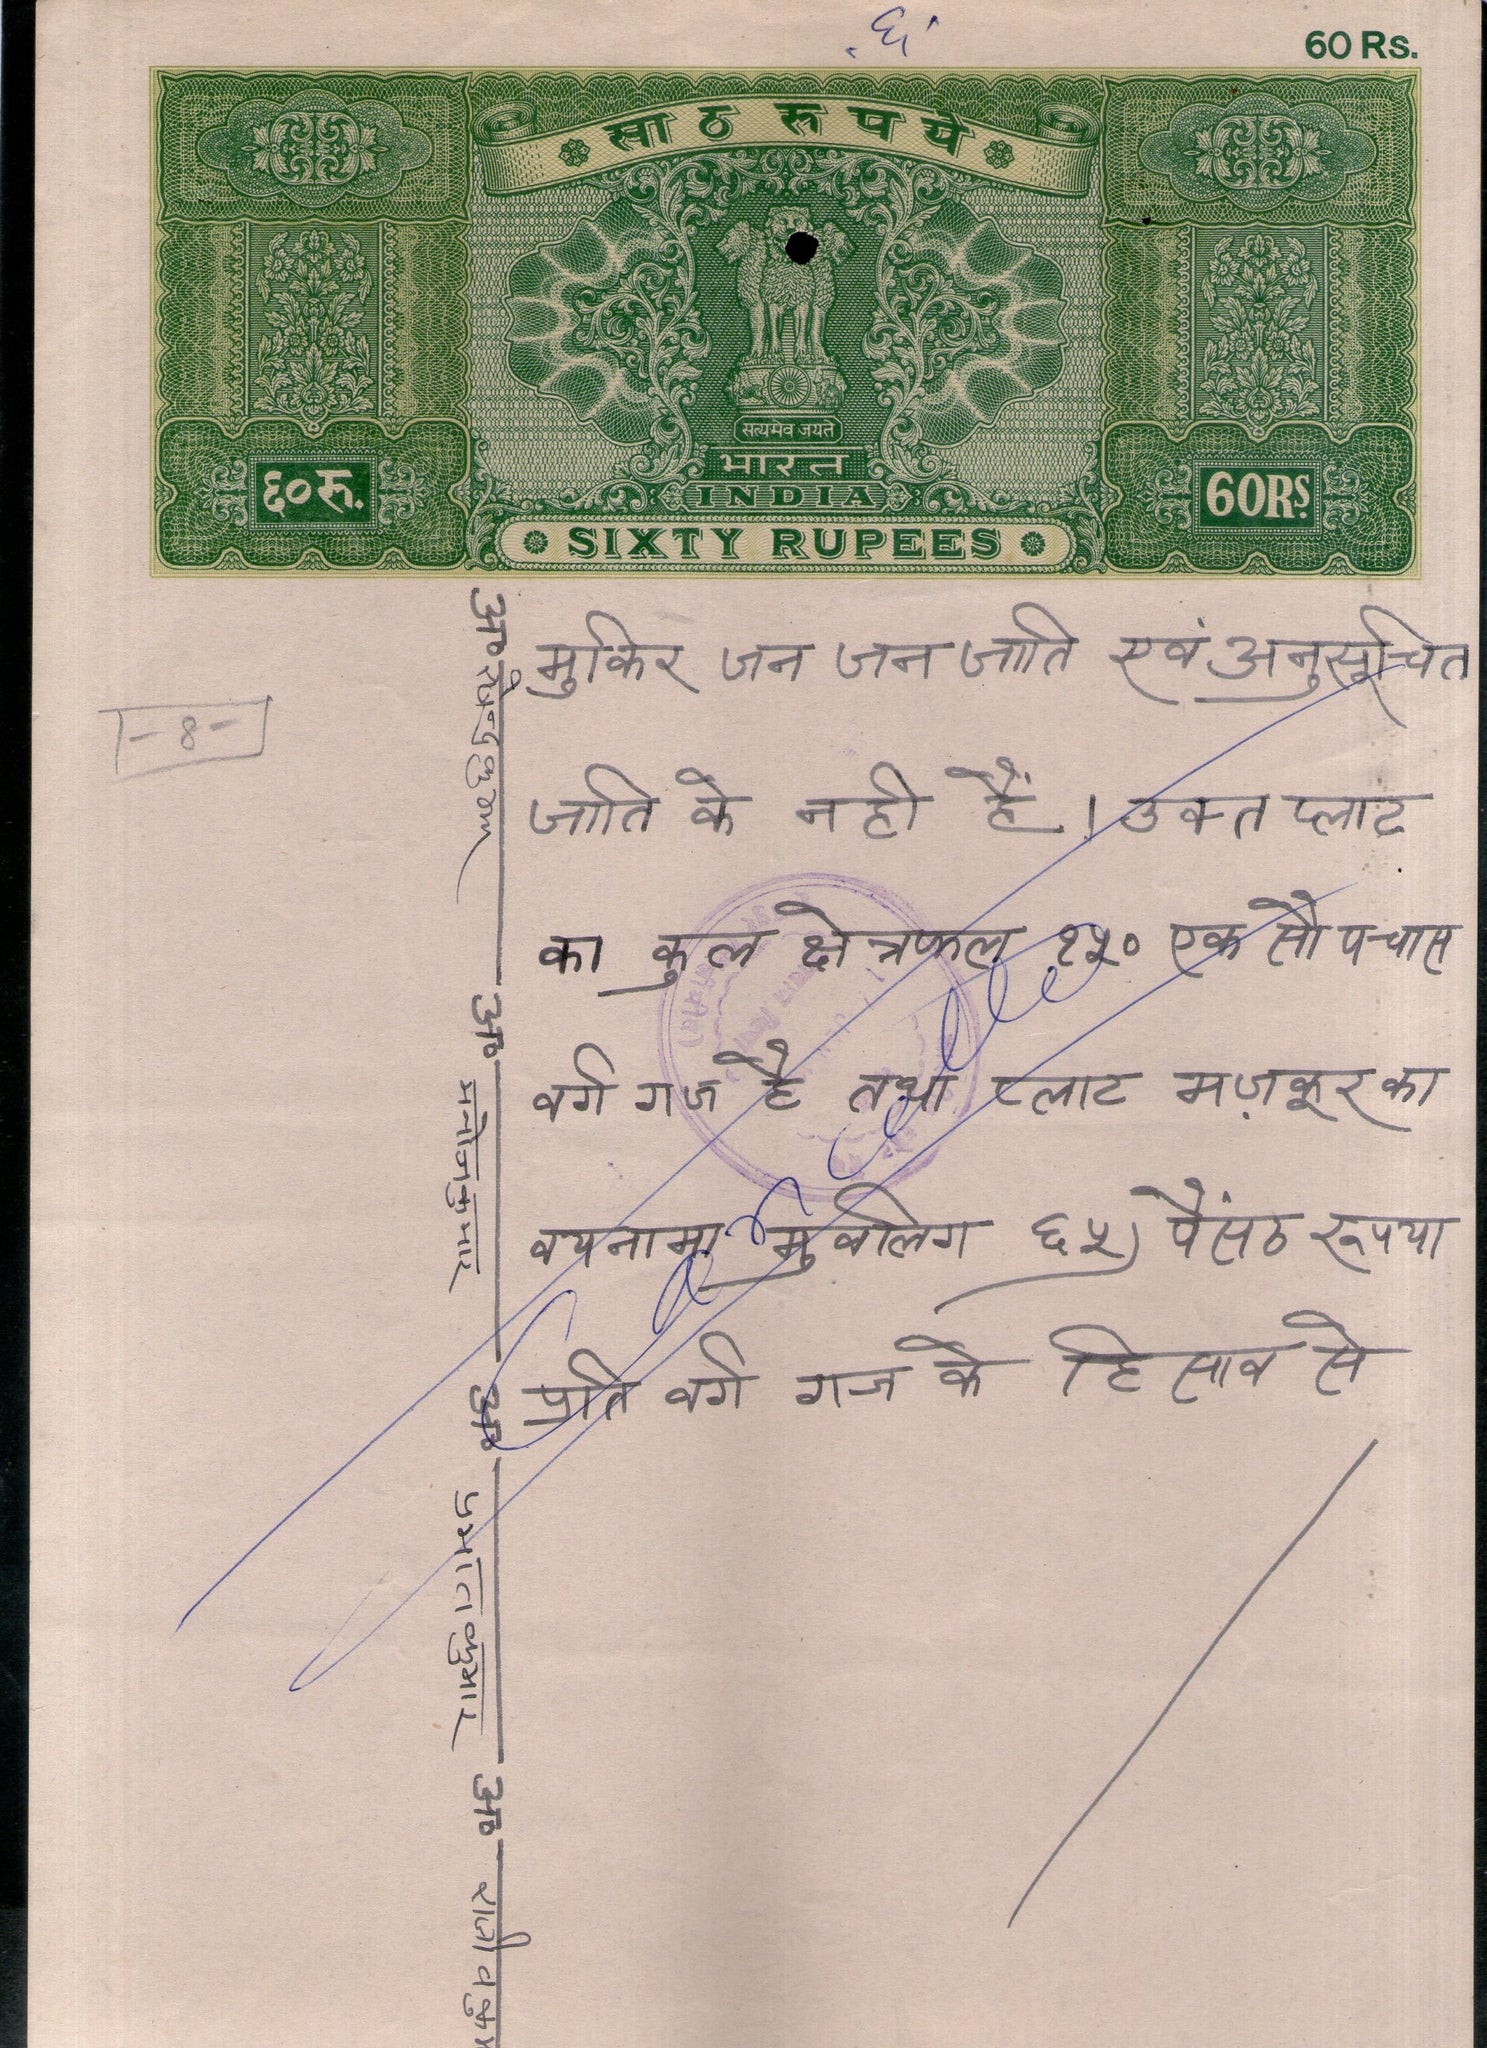 60 Rs.
साठ रुपये
सत्यमेव जयते
भारत
INDIA
६०रु.
60RS.
SIXTY RUPEES
मुकिर जन जन जाति एवं अनुसूचित
- 8 -
जाति के नही हैं। उक्त प्लाट
का कुल क्षेत्रफल १५० एक सौ पचास
वर्ग गज है तथा प्लाट मज़कूर का
वयनामा मुवलिग ६५) पैंसठ रूपया
प्रति वर्ग गज के हिसाव से
अ०
अ० मनोजकुमार
अ० प्रभातकुमार
अ० राजीवकुम